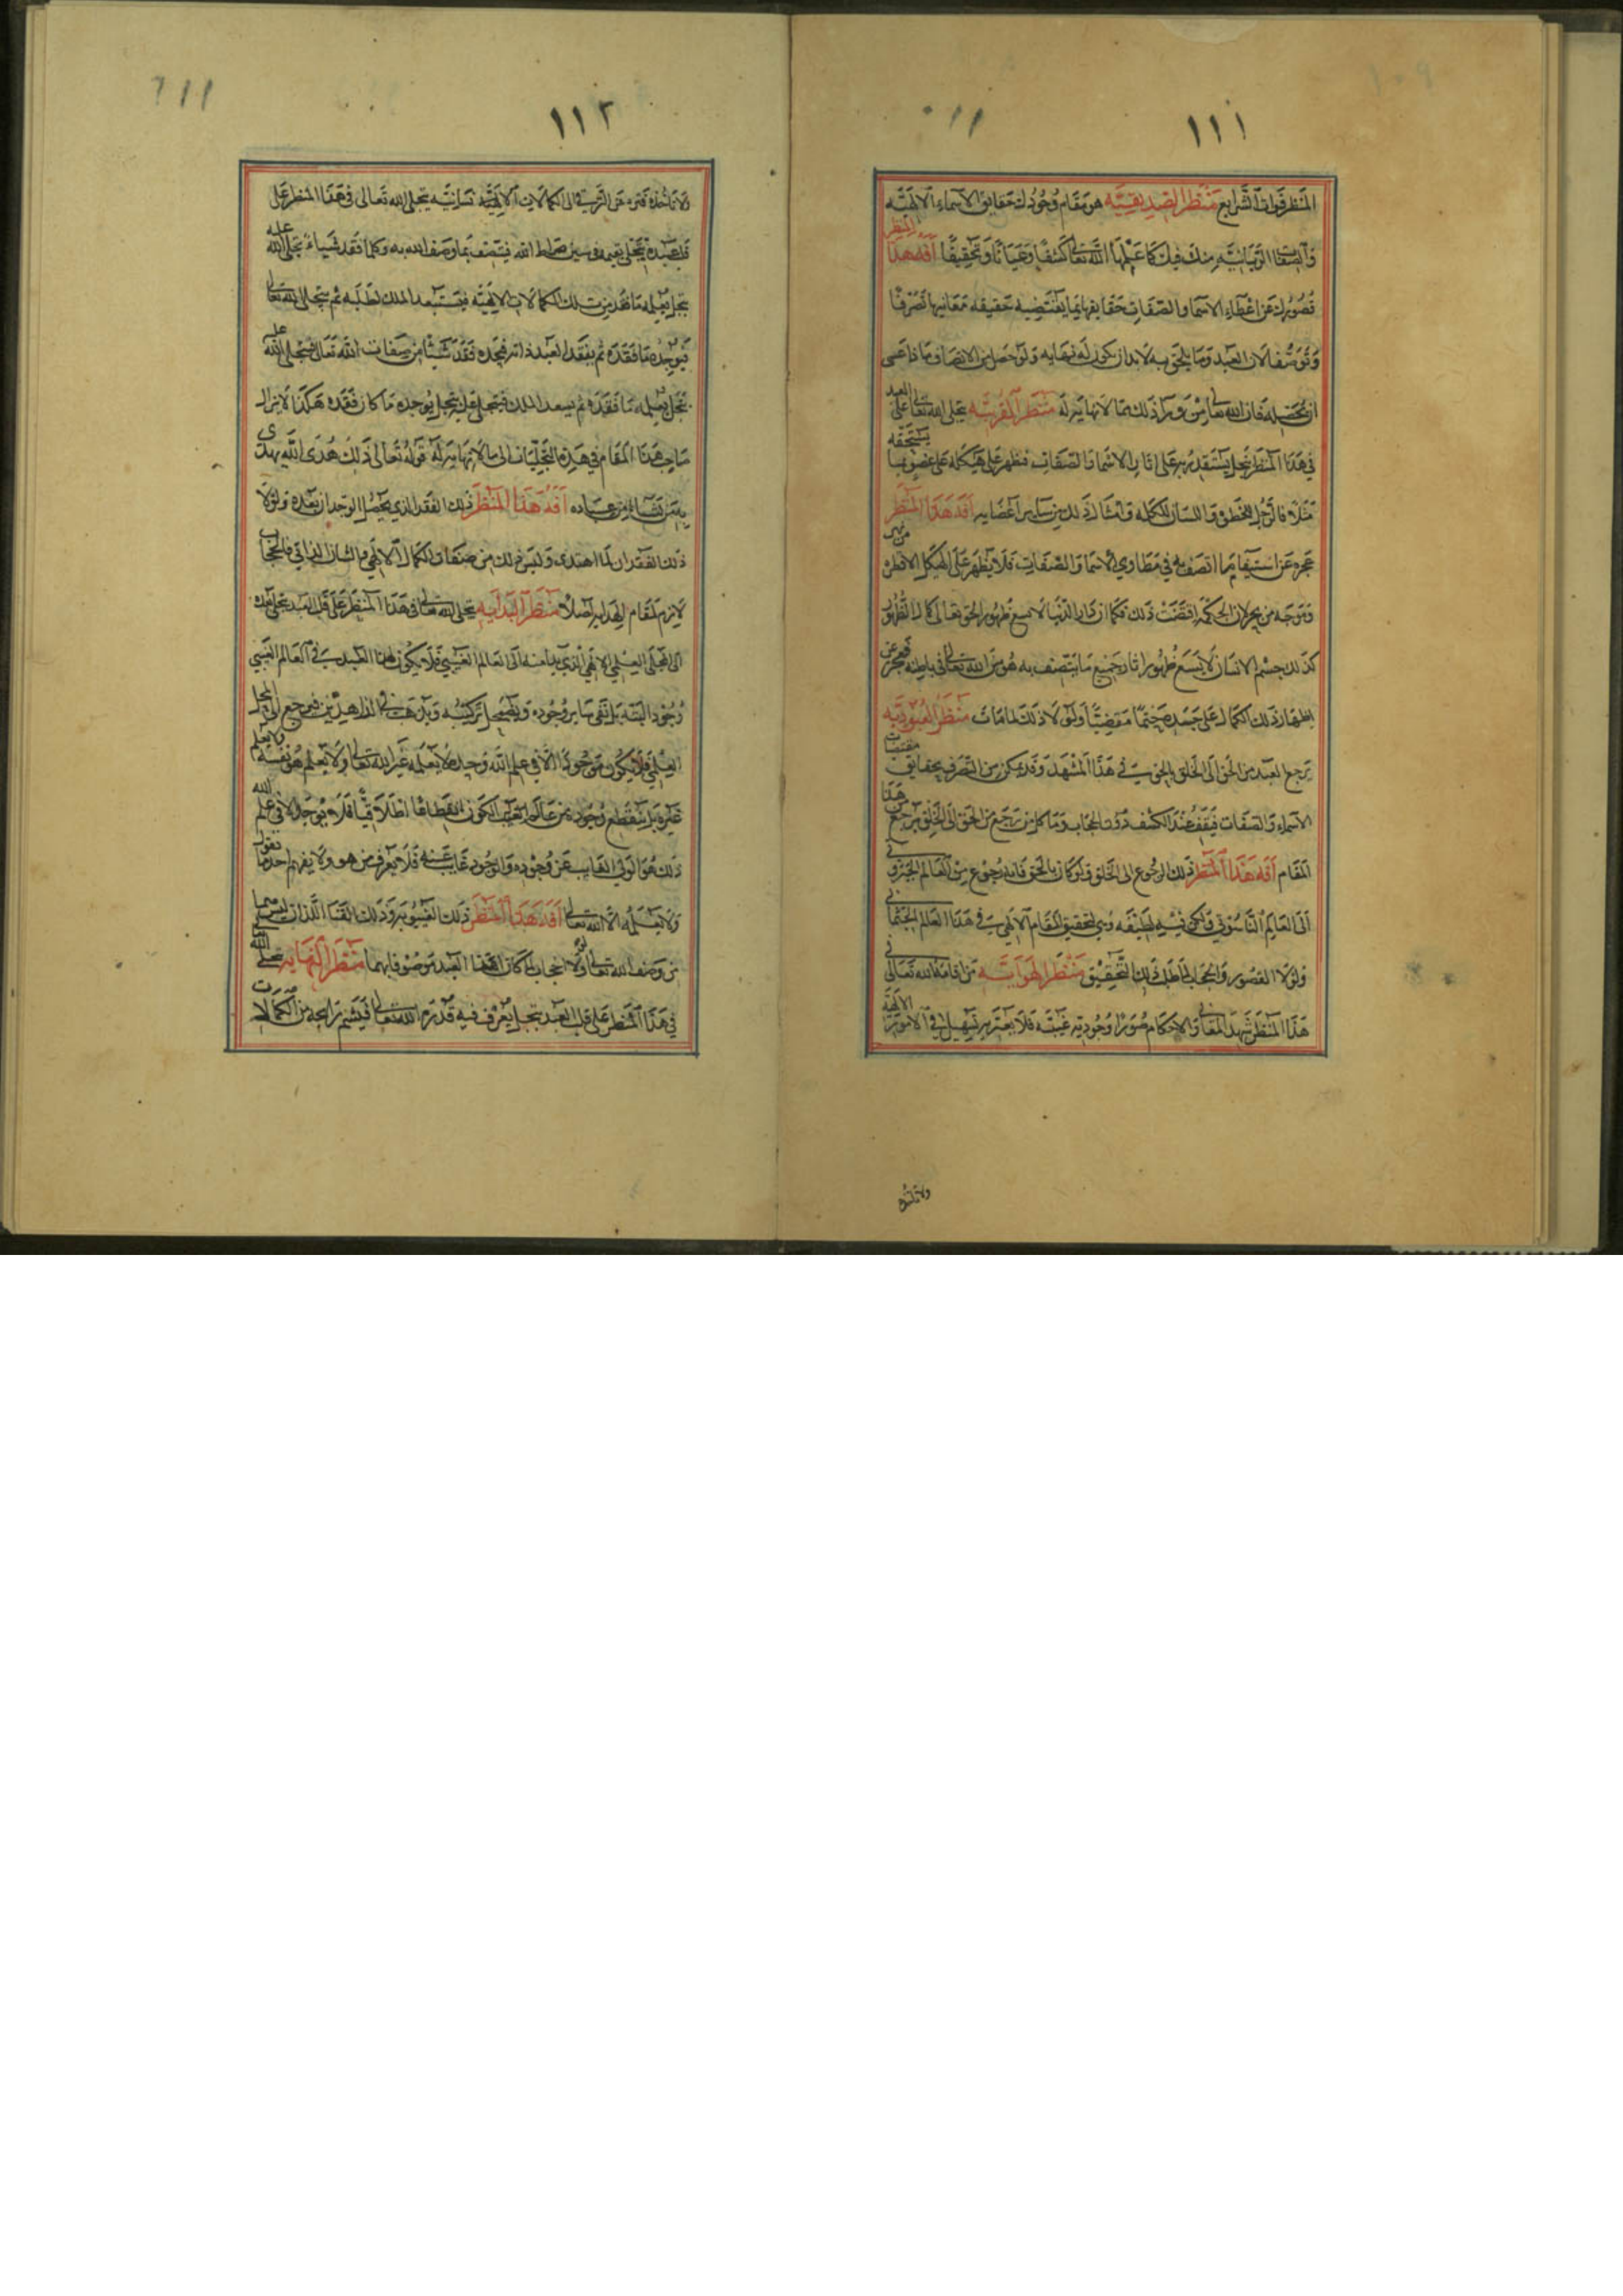 ١١١
المنظر فوات الشرايع منظر الصديقيه هو مقام وجودك حقايق الاسماء الالهيه
والصفات الربانيه منك فيك كما علمها الله تعالى كشفا وعيانا وتحقيقا افه هذا المنظر
قصورك عن اعطاء الاسما والصفات حقايقها بما يقتضيه حقيقه معانيها تصرفا
وتوصفا لان العبد وما يلحق به لا بد ان يكون له نهايه ولو حصل من الاتصاف ماذا عسى
ان يحصل له فان الله تعالى من ورا ذلك مما لا نهايه له منظر القربيه يتجلى الله تعالى على العبد
في هذا المنظر بتجل يستقدر به على اثار الاسما والصفات فتظهر على هيكله على عضو بما يستحقه
مثلا فالرجل للخطوه واللسان للكلمه وامثال ذلك من ساير اعضايه افه هذا المنظر
عجزه عن استيفا ما اتصف به في مطاوي الاسما والصفات فلا يظهر على الهيكل الا قطره من بحر
وموجه من بحر لان الحكمه اقتضت ذلك فكما ان دار الدنيا لا تسع ظهور الحق تعالى كمال الظهور
كذلك جسم الانسان لا يسع ظهور اثار جميع ما يتصف به هو من الله تعالى في باطنه فعجز عن
اظهار ذلك الكمال على جسده حتما مقضيا ولولا ذلك لمامات منظر العبوديه
يرجع العبد من الحق الى الخلق بالحق في هذا المشهد وقد يتمكن من التصرف بحقايق مقتضيات
الاسماء والصفات فيقف عند الكشف دون الحجاب وما كل من رجع من الحق الى الخلق يرجع من هذا
المقام افه هذا المنظر ذلك الرجوع الى الخلق ولو كان بالحق فانه رجوع من العالم الجبروتي
الى العالم الناسوتي ولكن فيه لطيفه وهي لتحقيق المقام الالهي في هذا العالم الجثماني
ولولا القصور والحجاب لما طلب ذلك التحقيق منظر الهدايه من اقامه الله تعالى في
هذا المنظر شهد المعاني والاحكام صورا وجوديه غيبيه فلا يعتريه تسهيل في الامور الالهيه
ولا تاخذه
١١٢
ولا تاخذه فتره عن الترقي الى الكمالات الالهيه يتجلى الله تعالى في هذا المنظر على
قلب عبده بتجل يقيمه في سير صراط الله فيتصف بما وصف الله به وكلما فقد شياء تجلى الله عليه
بتجل يعلمه ما فقد من تلك الكمالات الالهيه فيستبعد الملك لطلبه ثم يتجلى الله تعالى
فيوجده ما فقده ثم يفقد العبد ذاته فيجده فقد شيئا من صفات الله تعالى فيتجلى الله عليه
بتجل يعلمه ما فقده ثم يبعد الملك فيتجلى عليه بتجل يوجده ما كان فقده هكذا لا يزال
صاحب هذا المقام في هذه التجليات الى ما لا نهايه له قوله تعالى ذلك هدى الله يهدي
به من يشاء من عباده افه هذا المنظر ذلك الفقد الذي يحصل الوجدان بعده ولولا
ذلك الفقدان لما اهتدى وليس ذلك من صفات الكمال الالهي والشان الذاتي فالحجاب
لازم لمقام الهدايه اصلا منظر البدايه يتجلى الله تعالى في هذا المنظر على قلب العبد بتجل يعيده
الى المجلى العلمي الالهي الذي بدا منه الى العالم الغيبي فلا يكون لهذا العبد في العالم الغيبي
وجود البته بل تفنى ساير وجوده ويضمحل تركيبه ويذهب في الذاهبين فيرجع الى المجلى
العلمي فلا يكون موجودا الا في علم الله وحده لا يعلمه غير الله تعالى ولا يعلم هو نفسه ولا يعلم
غيره بل ينقطع وجوده من عالم الغيب الكون انقطاعا اطلاقيا فلا يوجد الا في علم الله
ذلك هو الولي الغايب عن وجوده والوجود غايب عنه فلا يعرف من هو ولا يفهم احد ما يقول
ولا يعلمه الا الله تعالى افه هذا المنظر ذلك الغيبوبه وذلك الفنا اللذان ليس هما
من وصف الله تعالى ولولا انحجابه لما كان هذا العبد موصوفا بهما منظر النهايه يتجلى الله
في هذا المنظر على قلب العبد بتجل يعرف فيه قدره الله تعالى فيشم رايحه من الكمالات